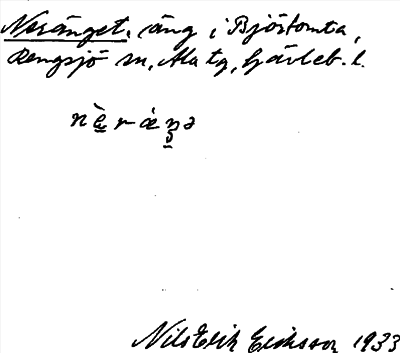 Neränget, äng i Björtomta,
Rengsjö sn, Ala tg, Gävleb. l.
nèräŋə
Nils Erik Eriksson 1933